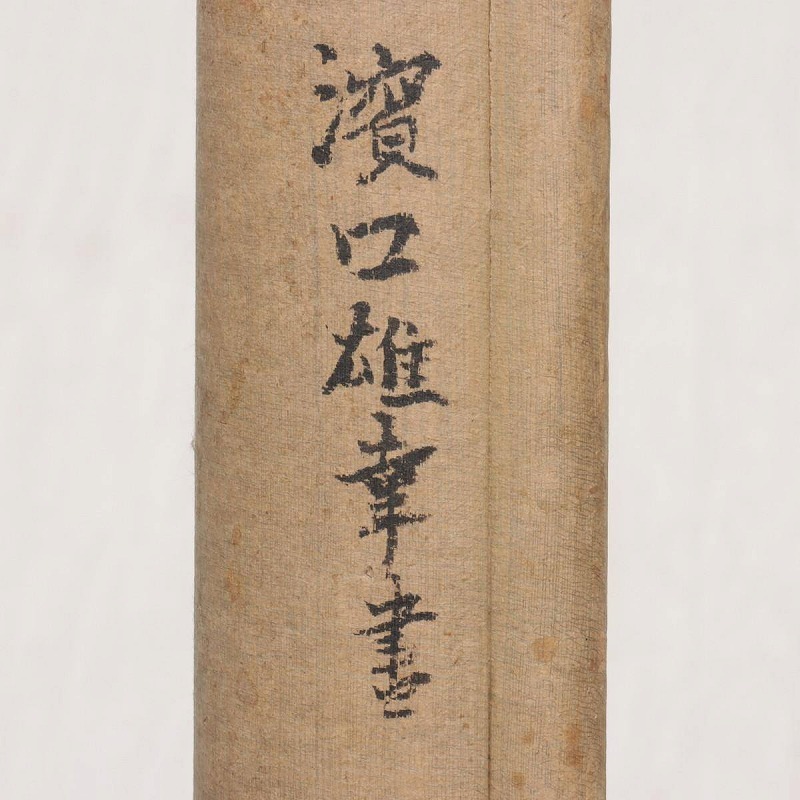 濱口雄幸書